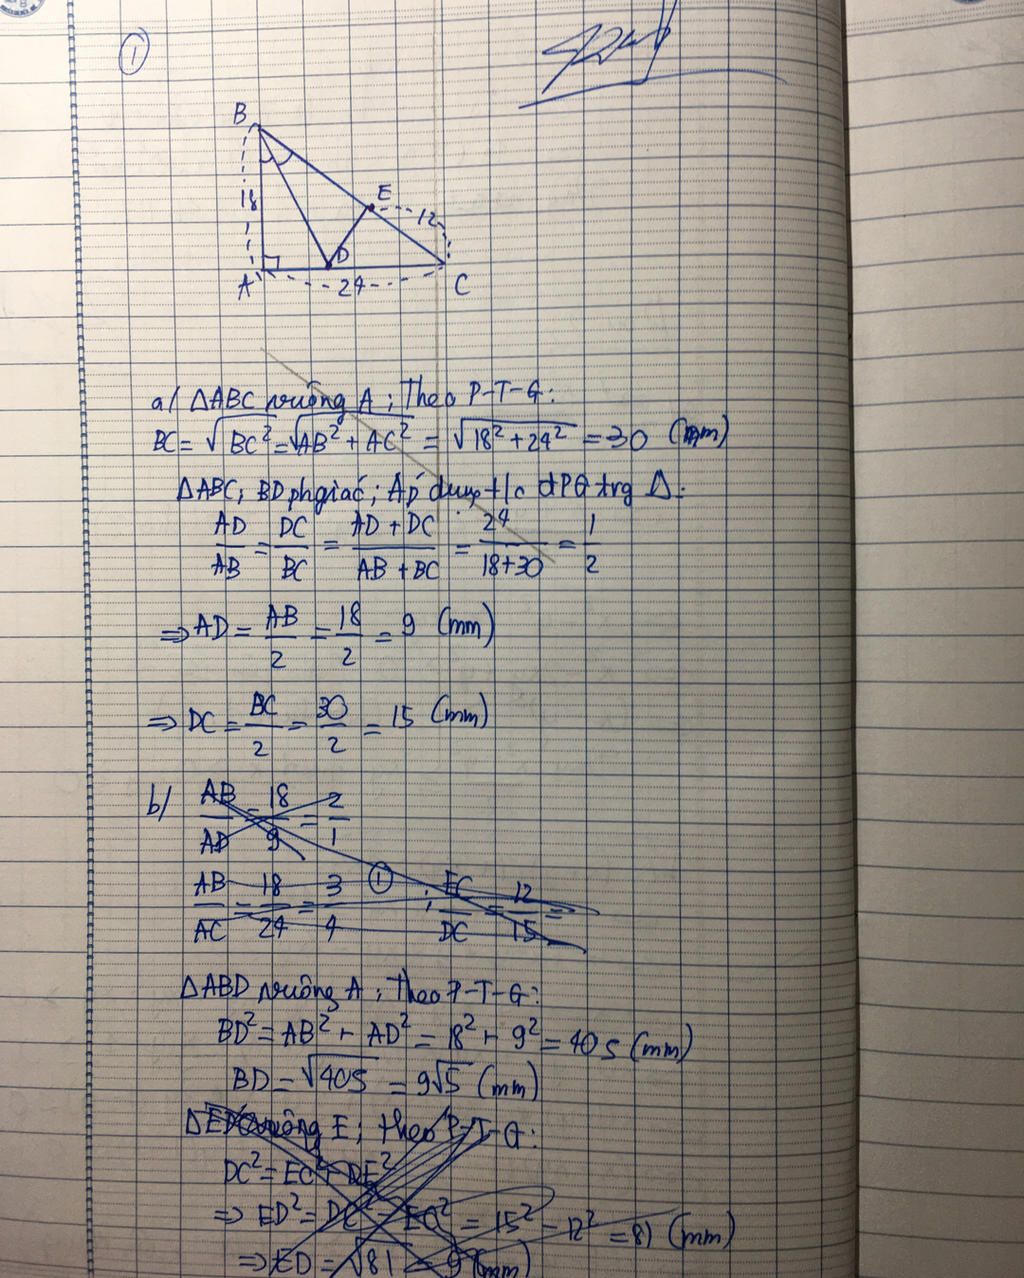 ①
B
18
E
12
D
A
24
C
a/ ΔABC vuông A; Theo P-T-G:
BC = √BC² = √AB² + AC² = √18² + 24² = 30 (mm)
ΔABC; BD phgiác; Áp dụng t/c đPG trg Δ:
AD/AB = DC/BC = AD + DC/AB + BC = 24/18+30 = 1/2
⇒ AD = AB/2 = 18/2 = 9 (mm)
⇒ DC = BC/2 = 30/2 = 15 (mm)
b/ AB/AD = 18/9 = 2/1
AB/AC = 18/24 = 3/4 ① ; EC/DC = 12/15 =
ΔABD vuông A; Theo P-T-G:
BD² = AB² + AD² = 18² + 9² = 405 (mm)
BD = √405 = 9√5 (mm)
ΔEDC vuông E; theo P-T-G:
DC² = EC² + DE²
⇒ ED² = DC² - EC² = 15² - 12² = 81 (mm)
⇒ ED = √81 = 9 (mm)